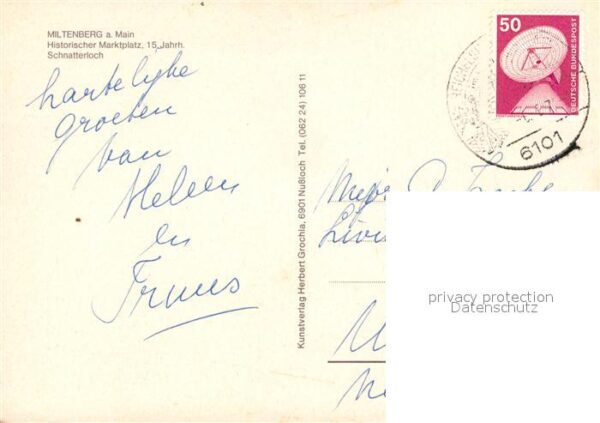 MILTENBERG a. Main
Historischer Marktplatz, 15. Jahrh.
Schnatterloch
hartelijke
groeten
van
Heleen
en
Truus
Kunstverlag Herbert Grochla, 6901 Nußloch Tel. (062 24) 106 11
50
DEUTSCHE BUNDESPOST
6101
privacy protection
Datenschutz